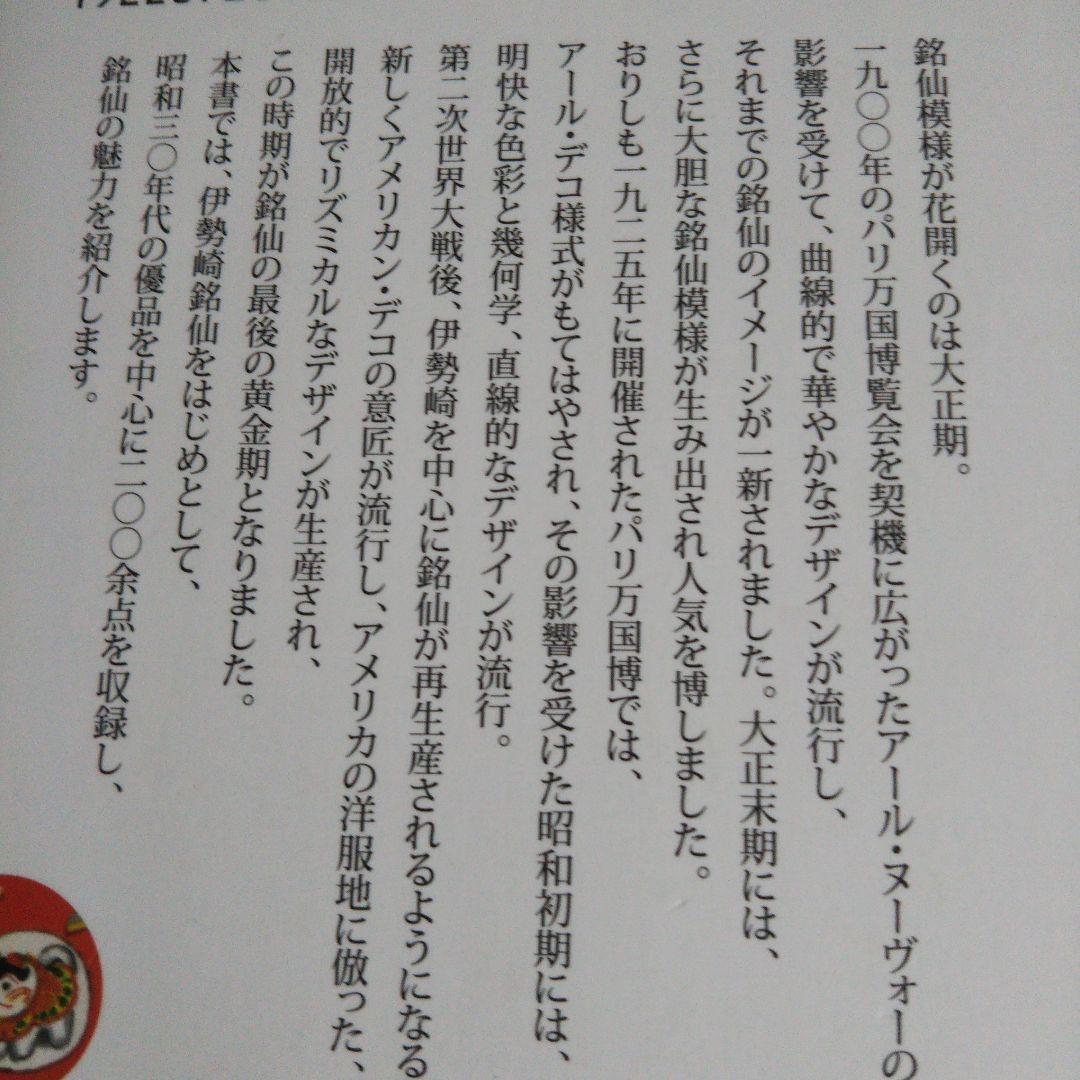 銘仙模様が花開くのは大正期。
一九〇〇年のパリ万国博覧会を契機に広がったアール・ヌーヴォーの
影響を受けて、曲線的で華やかなデザインが流行し、
それまでの銘仙のイメージが一新されました。大正末期には、
さらに大胆な銘仙模様が生み出され人気を博しました。
おりしも一九二五年に開催されたパリ万国博では、
アール・デコ様式がもてはやされ、その影響を受けた昭和初期には、
明快な色彩と幾何学、直線的なデザインが流行。
第二次世界大戦後、伊勢崎を中心に銘仙が再生産されるようになる
新しくアメリカン・デコの意匠が流行し、アメリカの洋服地に倣った、
開放的でリズミカルなデザインが生産され、
この時期が銘仙の最後の黄金期となりました。
本書では、伊勢崎銘仙をはじめとして、
昭和三〇年代の優品を中心に二〇〇余点を収録し、
銘仙の魅力を紹介します。